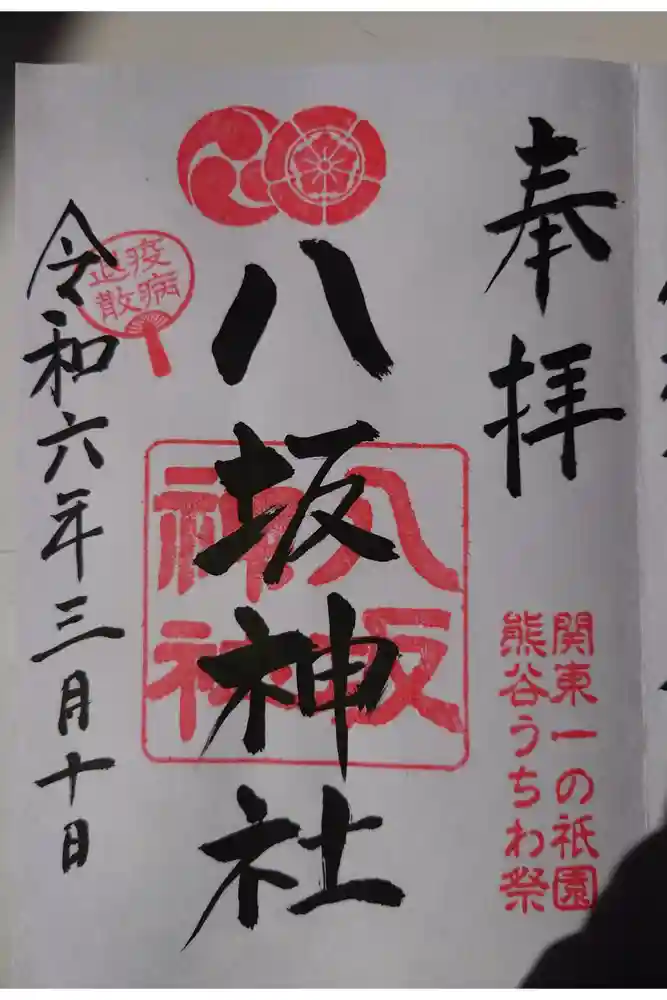 奉拝
関東一の祇園
熊谷うちわ祭
八坂神社
八坂
神社
疫病
退散
令和六年三月十日